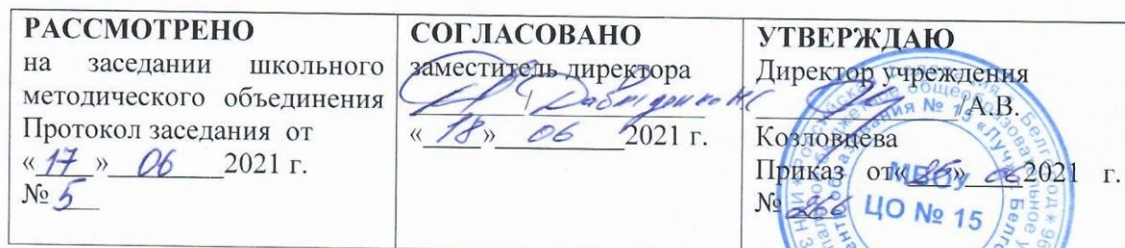 РАССМОТРЕНО
на заседании школьного
методического объединения
Протокол заседания от
«17» 06 2021 г.
№ 5
СОГЛАСОВАНО
заместитель директора
«18» 06 2021 г.
УТВЕРЖДАЮ
Директор учреждения
/А.В.
Козловцева
Приказ от« » 2021 г.
№
МБОУ
ЦО № 15